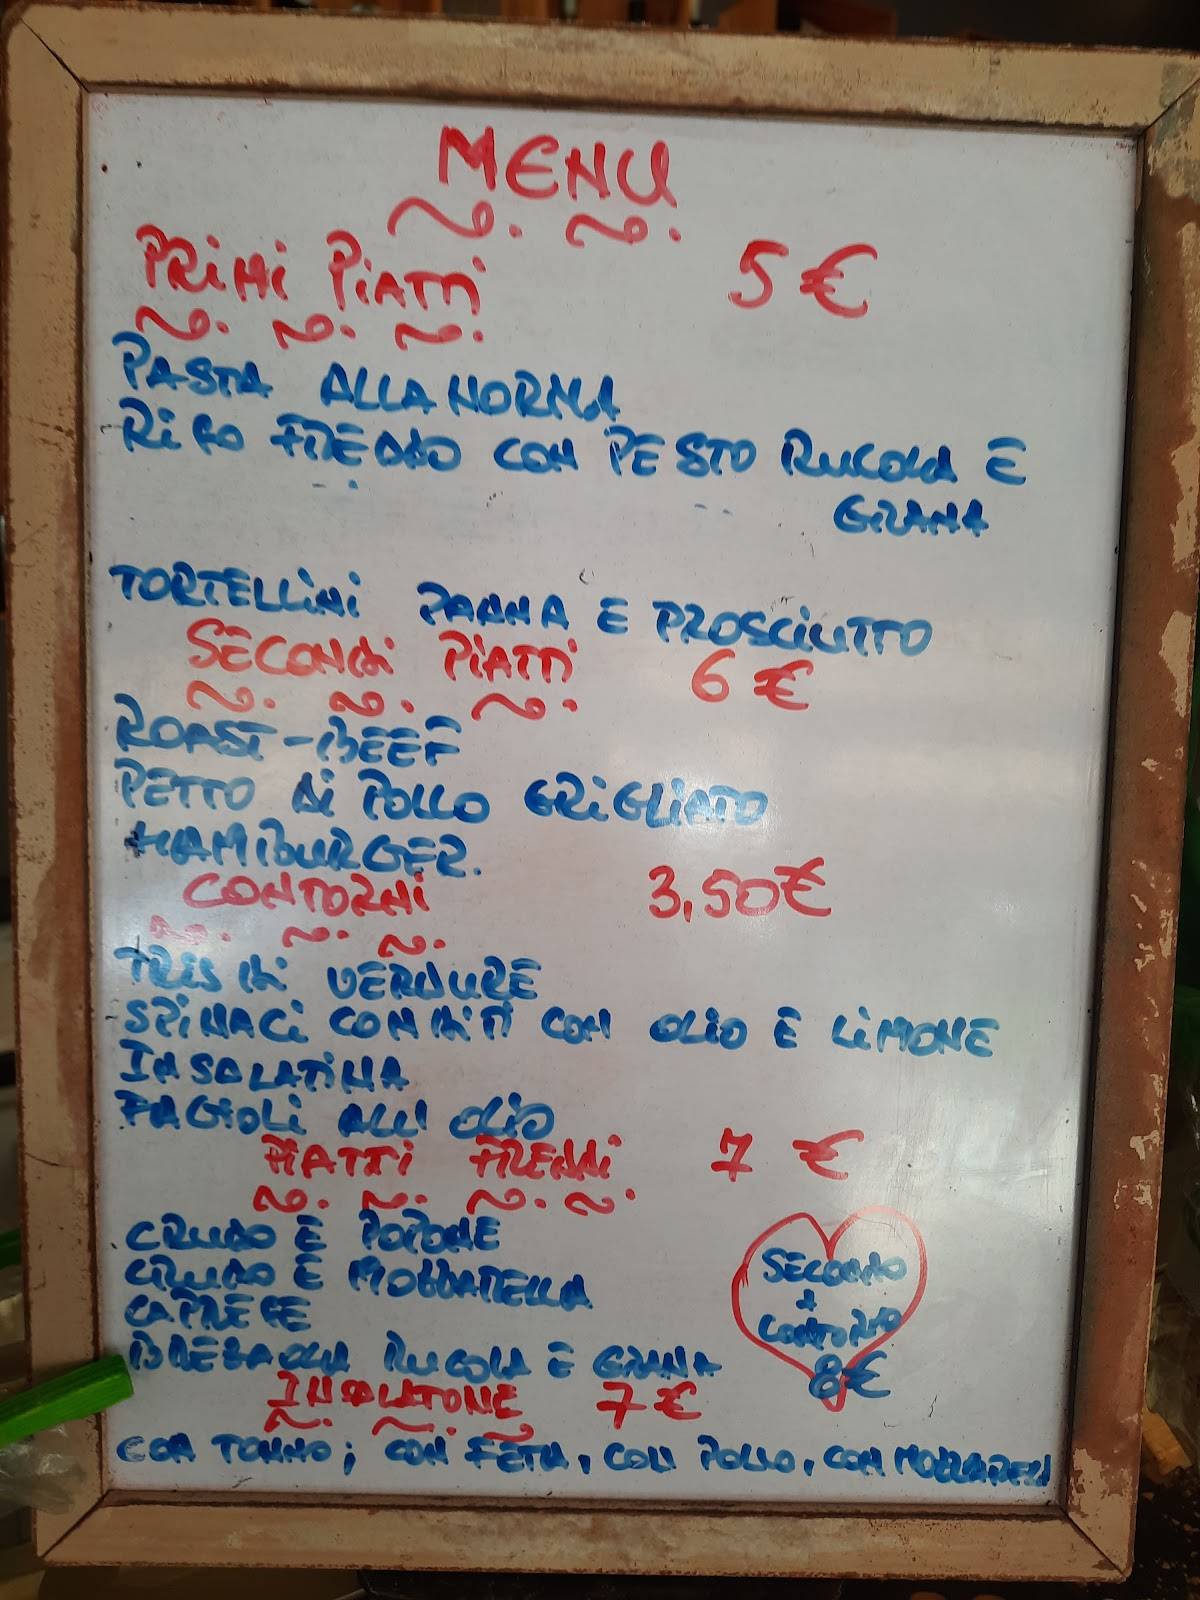 MENU
PRIMI PIATTI 5€
PASTA ALLA NORMA
RISO FREDDO CON PESTO RUCOLA E
GRANA
TORTELLINI PANNA E PROSCIUTTO
SECONDI PIATTI 6€
ROAST-BEEF
PETTO DI POLLO GRIGLIATO
HAMBURGER.
CONTORNI 3,50€
TRIS DI VERDURE
SPINACI CONDITI CON OLIO E LIMONE
INSALATINA
FAGIOLI ALL' OLIO
PIATTI FREDDI 7 €
CRUDO E POPONE
CRUDO E MOZZARELLA
CAPRESE
BRESAOLA RUCOLA E GRANA
SECONDO
+
CONTORNO
8€
INSALATONE 7€
CON TONNO; CON FETA, CON POLLO, CON MOZZARELLA